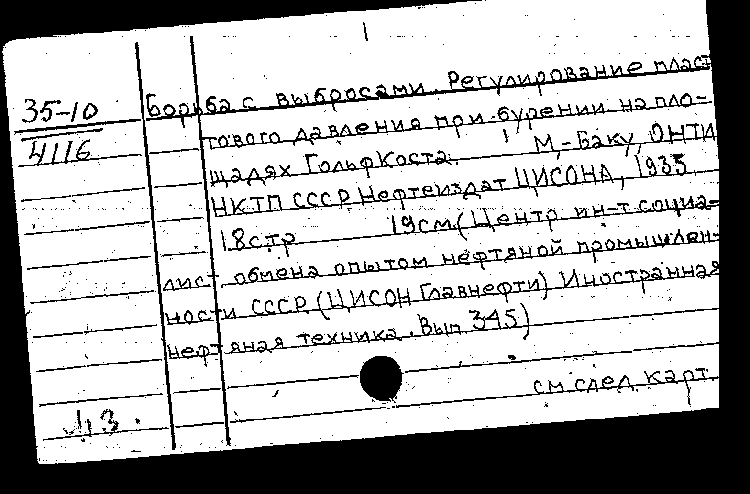 35-10
4116
Борьба с выбросами. Регулирование пласт
тового давления при бурении на пло-
щадях ГольфКоста. М,-Баку, ОНТИ
НКТП СССР, Нефтеиздат ЦИСОНА, 1935
18стр 19см. (Центр ин-т социа-
лист обмена опытом нефтяной промышлен-
ности СССР. (ЦИСОН Главнефти) Иностранная
нефтяная техника. Вып 345)
см след карт.